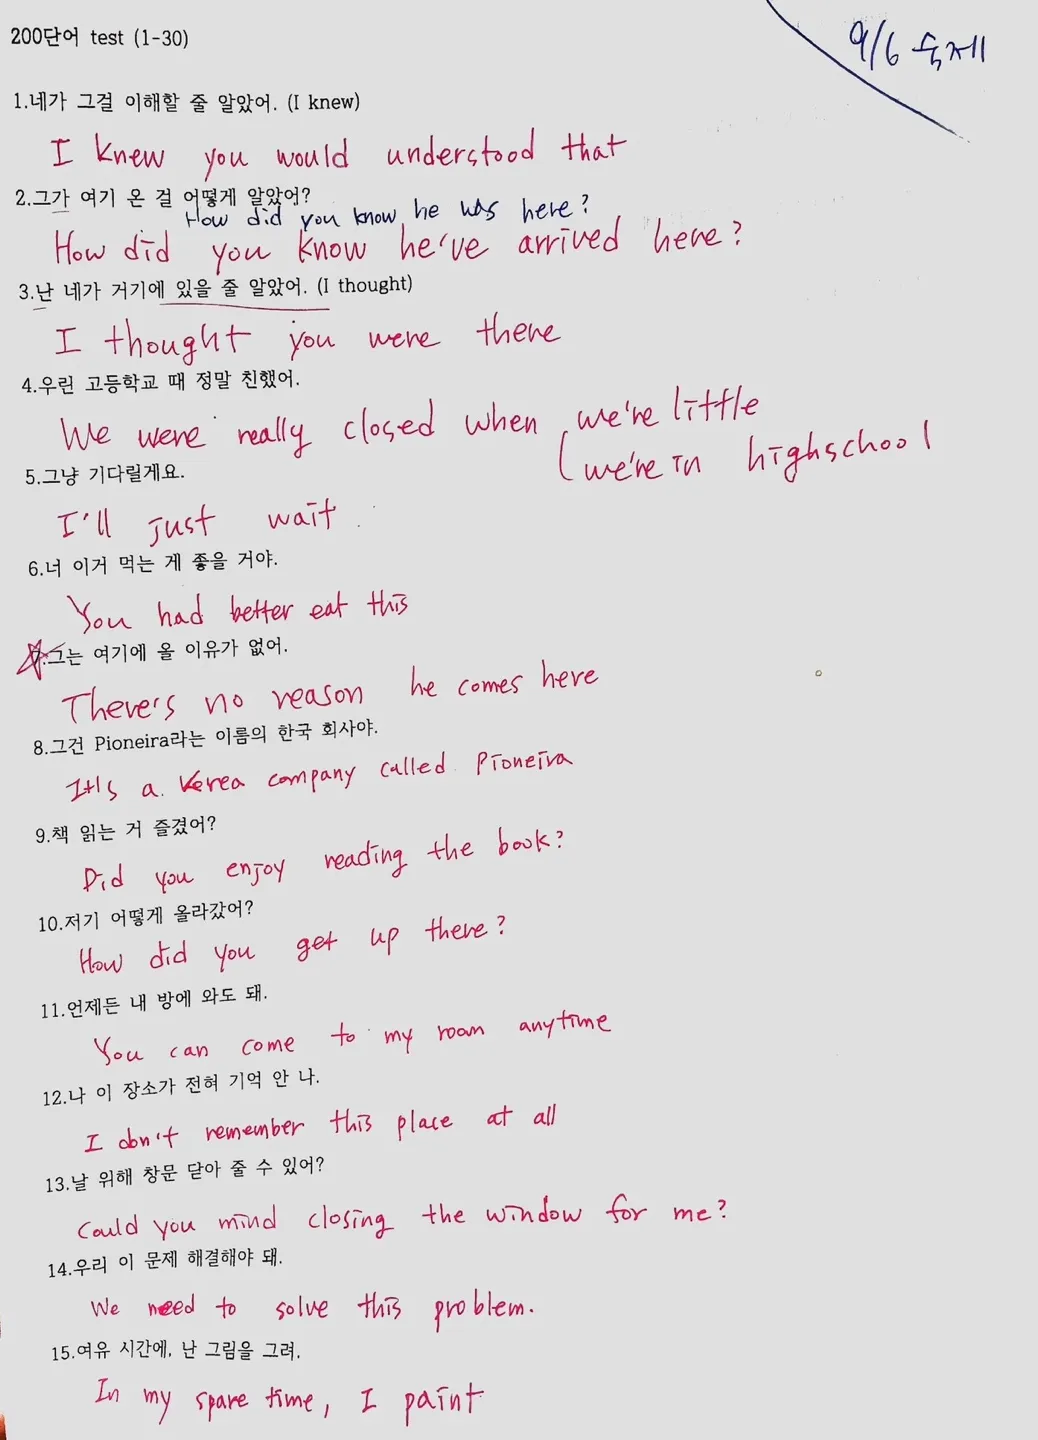 200단어 test (1-30)
9/6 숙제
1.네가 그걸 이해할 줄 알았어. (I knew)
I knew you would understood that
2.그가 여기 온 걸 어떻게 알았어?
How did you know he was here?
How did you know he've arrived here?
3.난 네가 거기에 있을 줄 알았어. (I thought)
I thought you were there
4.우린 고등학교 때 정말 친했어.
We were really closed when we're little
we're in highschool
5.그냥 기다릴게요.
I'll just wait
6.너 이거 먹는 게 좋을 거야.
You had better eat this
7.그는 여기에 올 이유가 없어.
There's no reason he comes here
8.그건 Pioneira라는 이름의 한국 회사야.
It's a Korea company called Pioneira
9.책 읽는 거 즐겼어?
Did you enjoy reading the book?
10.저기 어떻게 올라갔어?
How did you get up there?
11.언제든 내 방에 와도 돼.
You can come to my room anytime
12.나 이 장소가 전혀 기억 안 나.
I don't remember this place at all
13.날 위해 창문 닫아 줄 수 있어?
Could you mind closing the window for me?
14.우리 이 문제 해결해야 돼.
We need to solve this problem.
15.여유 시간에, 난 그림을 그려.
In my spare time, I paint